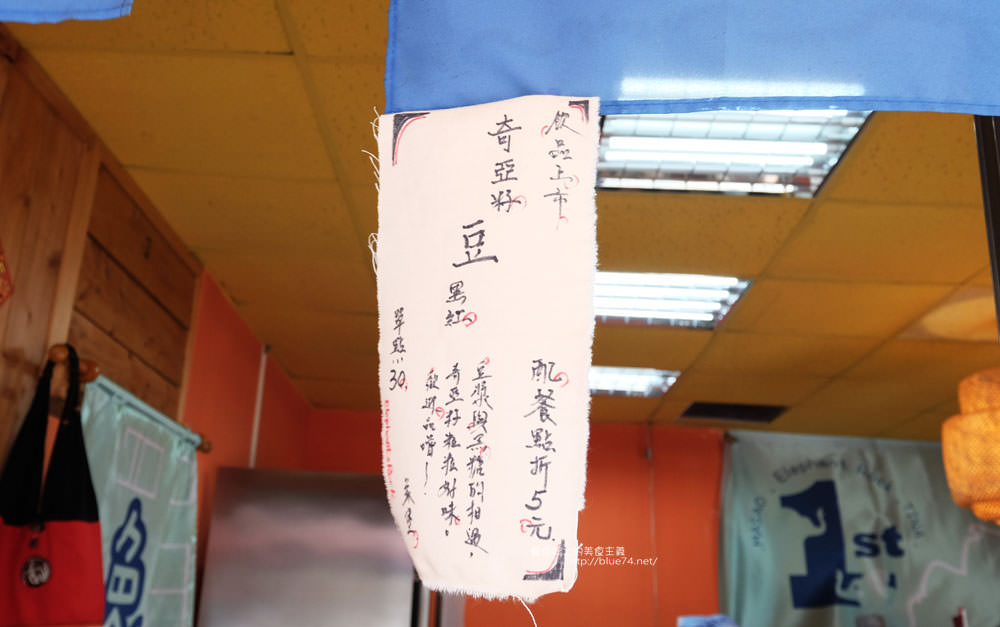 飲品上市
奇亞籽
豆
黑紅
配餐點折5元
豆漿與黑糖的相遇，
奇亞籽粒粒對味，
歡迎品嚐~!
單點:30
1st
美食主義
http://blue74.net/